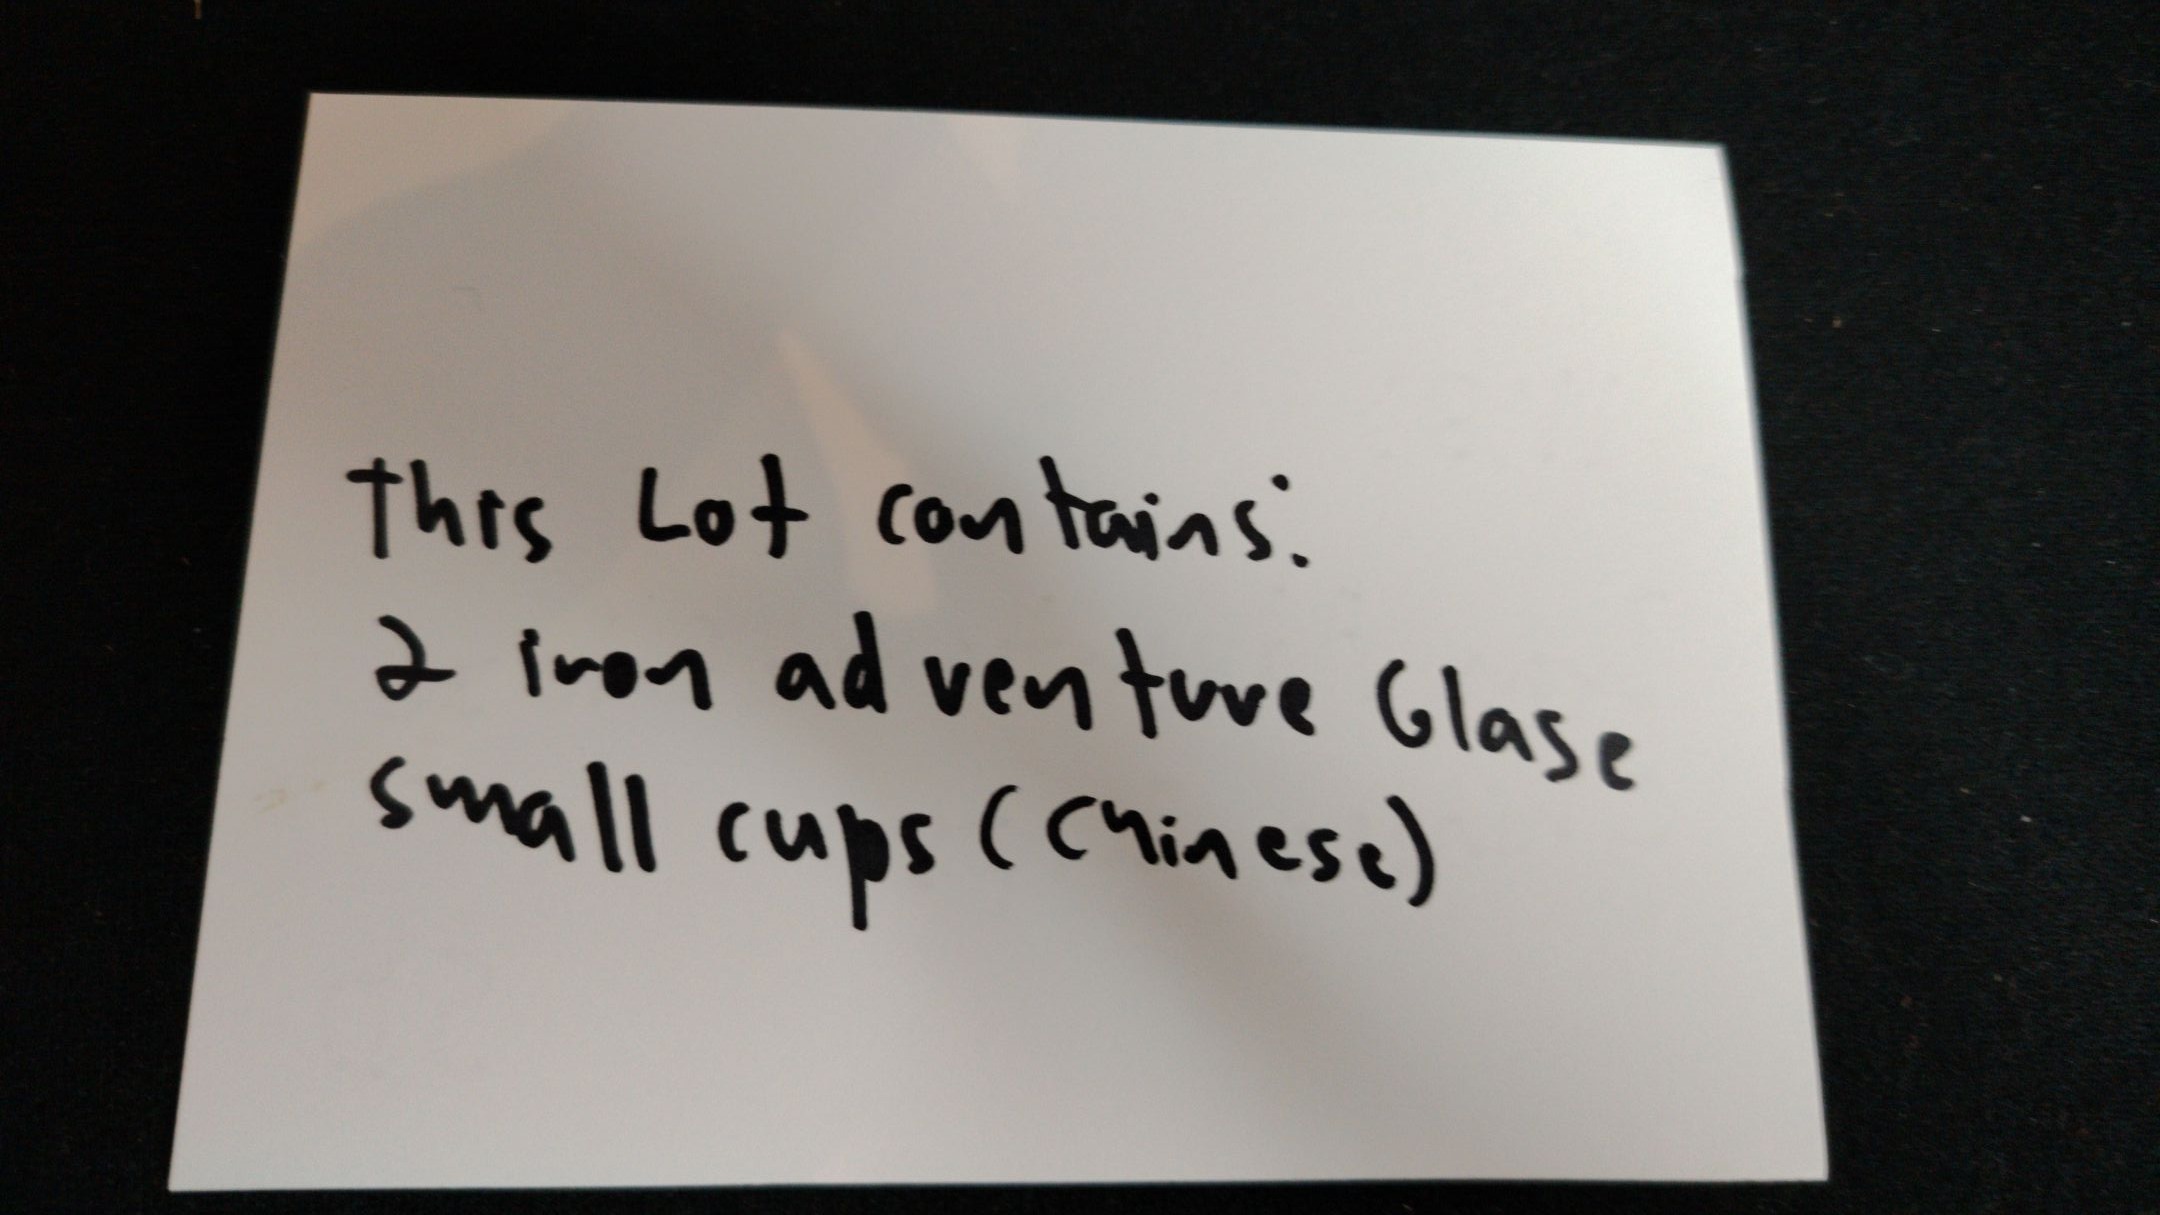 This Lot contains:
2 iron adventure Glase
small cups (Chinese)